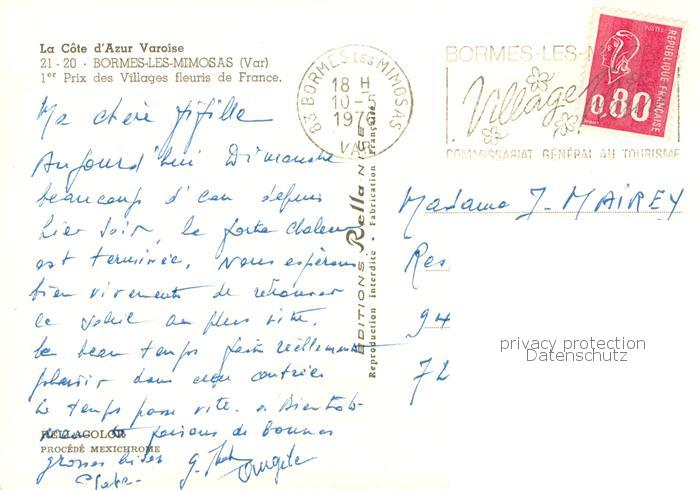 La Côte d'Azur Varoise
21-20 - BORMES-LES-MIMOSAS (Var)
1er Prix des Villages fleuris de France.
83 BORMES LES MIMOSAS
18 H
10-5
1976
VAR
BORMES-LES-M
Village
COMMISSARIAT GÉNÉRAL AU TOURISME
POSTES
RÉPUBLIQUE FRANÇAISE
0,80
Ma chère fifille
Aujourd'hui Dimanche
beaucoup d'eau depuis
hier soir, la forte chaleur
est terminée, nous espérons
bien vivement de retrouver
le soleil au plus vite.
le beau temps fait réellement
plaisir dans ces contrées
Le temps passe vite. à Bientôt
faisons de bonnes
grosses bises
Angèle
RELLACOLOR
PROCÉDÉ MEXICHROME
EDITIONS Rella NICE
Reproduction interdite • Fabrication Française
Madame J. MAIREY
Res
94
72
privacy protection
Datenschutz